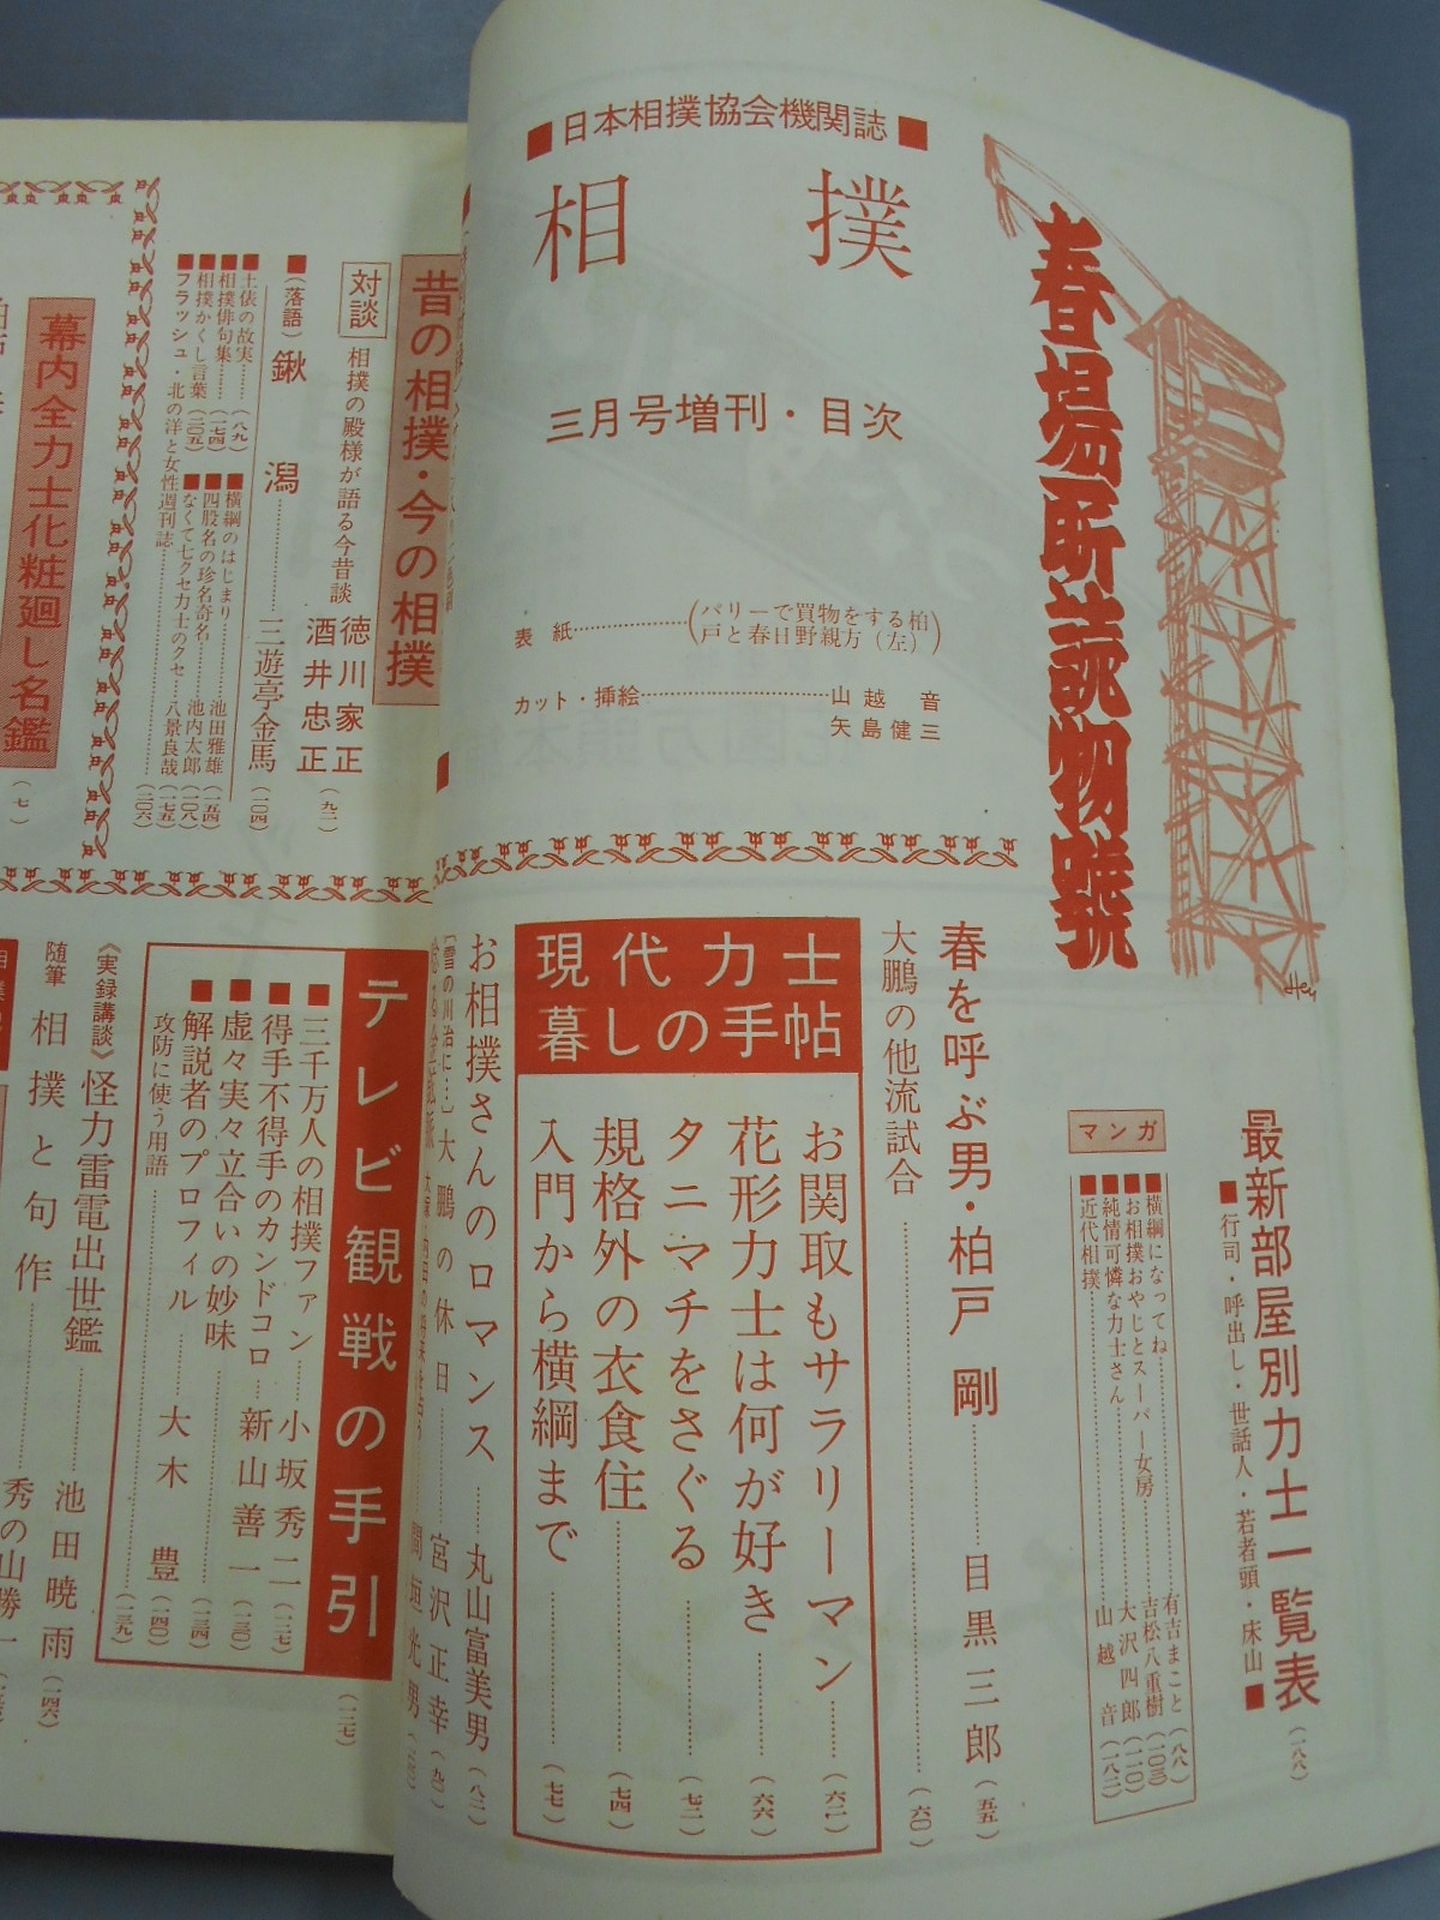 ■日本相撲協会機関誌■
相撲
三月号増刊・目次
春場所読物號
表紙…………(パリーで買物をする柏戸と春日野親方(左))
カット・挿絵…………山越音
矢島健三
最新部屋別力士一覧表(一八八)
■行司・呼出し・世話人・若者頭・床山■
マンガ
■横綱になってね…………有吉まこと(八八)
■お相撲おやじとスーパー女房…………吉松八重樹(一〇三)
■純情可憐な力士さん…………大沢四郎(一二〇)
■近代相撲…………山越音(一八二)
春を呼ぶ男・柏戸剛…………目黒三郎(五五)
大鵬の他流試合…………(六〇)
現代力士
暮しの手帖
お関取もサラリーマン……(六二)
花形力士は何が好き……(六六)
タニマチをさぐる……(七二)
規格外の衣食住……(七四)
入門から横綱まで……(七七)
お相撲さんのロマンス……丸山富美男(八二)
〔雪の川治に…〕大鵬の休日……宮沢正幸(九〇)
間垣光男
昔の相撲・今の相撲
対談
相撲の殿様が語る今昔談
徳川家正
酒井忠正
(九二)
■(落語)鍬潟…………三遊亭金馬(一〇四)
■土俵の故実……(八九)
■相撲俳句集……(一七四)
■相撲かくし言葉(二〇五)
■フラッシュ・北の洋と女性週刊誌…………(二〇六)
■横綱のはじまり……池田雅雄(一五四)
■四股名の珍名奇名……池内太郎(一〇八)
■なくて七クセ力士のクセ…八景良哉(一七五)
幕内全力士化粧廻し名鑑(七)
テレビ観戦の手引(一二七)
■三千万人の相撲ファン……小坂秀二(一二七)
■得手不得手のカンドコロ…新山善一(一三〇)
■虚々実々立合いの妙味……(一三四)
■解説者のプロフィル……大木豊(一四〇)
攻防に使う用語…………(一三九)
《実録講談》怪力雷電出世鑑……池田暁雨(一四六)
随筆 相撲と句作……秀の山勝一